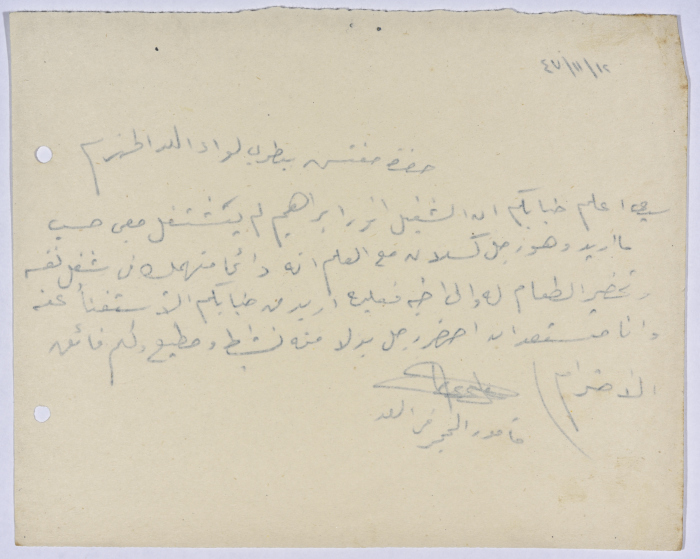 ٤٧/١١/١٢
حضرة مفتش بيطري لواء اللد المحترم
سيدي اعلم جنابكم ان الشغيل انور ابراهيم لم يشتغل معي حسب
ما اريد وهو رجل كسلان مع العلم انه دائما منهمك في شغل نفسه
وتحضير الطعام له والى اخيه فعليه اريد من جنابكم الاستغناء عنه
وانا مستعد ان احضر رجل بدلا منه نشيط ومطيع ولكم فائق
الاحترام
مأمور الحجر في اللد